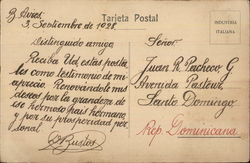 B. Aires
3, Septiembre de 1928.
Tarjeta Postal
INDUSTRIA
ITALIANA
Distinguido amigo
Reciba Ud. estas postales
como testimonio de mi
aprecio. Renovandole mis
deseos por la grandeza de
ese hermoso país hermano,
y por su prosperidad personal.
Bustos
Señor.
Juan R. Pacheco, G
Avenida Pasteur,
Santo Domingo
Rep. Dominicana